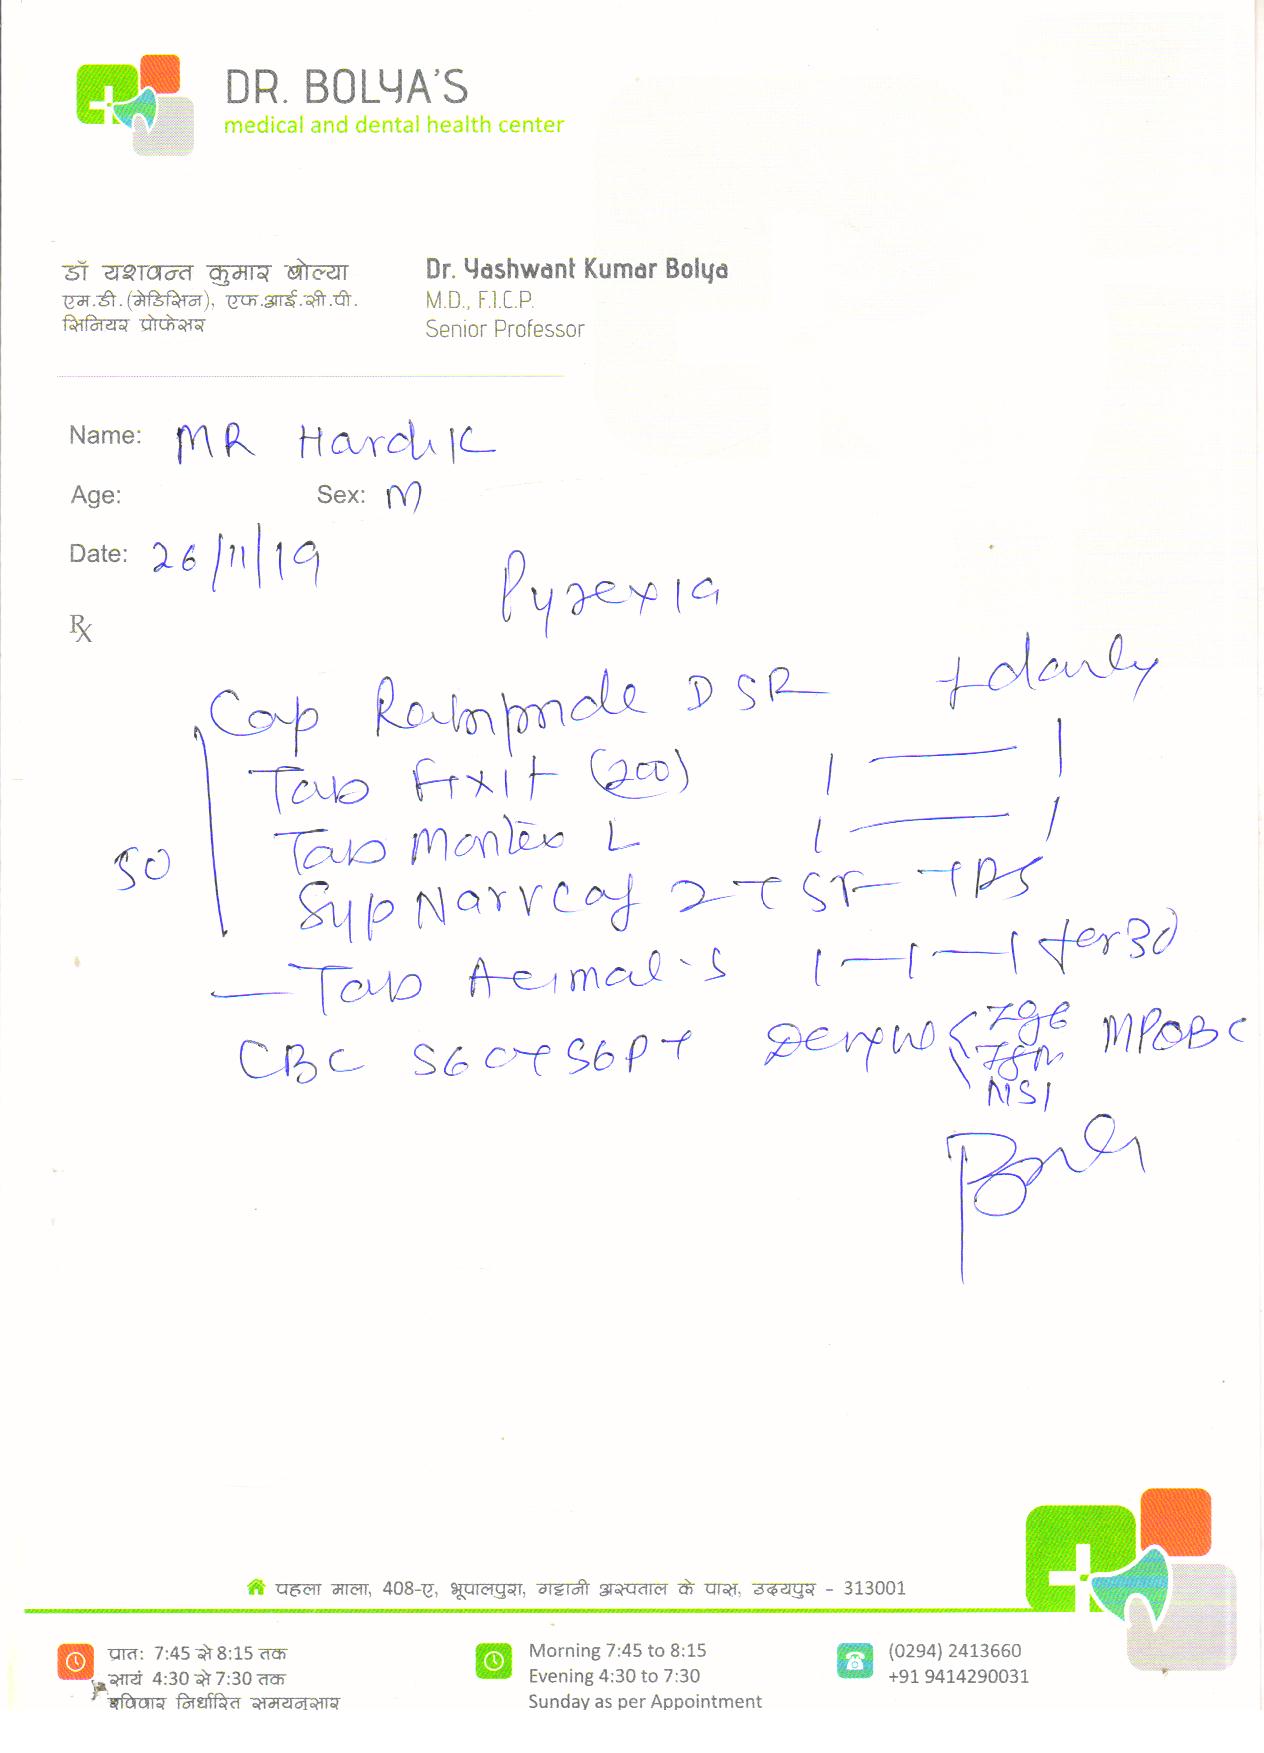 DR. BOLYA'S
medical and dental health center
डॉ यशवन्त कुमार बोल्या
एम.डी.(मेडिसिन), एफ.आई.सी.पी.
सिनियर प्रोफेसर
Dr. Yashwant Kumar Bolya
M.D., F.I.C.P.
Senior Professor
Name: MR Hardik
Age: Sex: M
Date: 26/11/19
Pyrexia
Rx
Cap DSR 1 daily
Tab Fixit (200) 1 — 1
Tab Montex L 1 — 1
5D
Syp 2 TSF TDS
— Tab Acimal-S 1—1—1 for 3d
CBC SGOT SGPT IgG MPQBC
IgM
NS1
पहला माला, 408-ए, भूपालपुरा, गट्टानी अस्पताल के पास, उदयपुर - 313001
प्रात: 7:45 से 8:15 तक
सायं 4:30 से 7:30 तक
रविवार निर्धारित समयनुसार
Morning 7:45 to 8:15
Evening 4:30 to 7:30
Sunday as per Appointment
(0294) 2413660
+91 9414290031